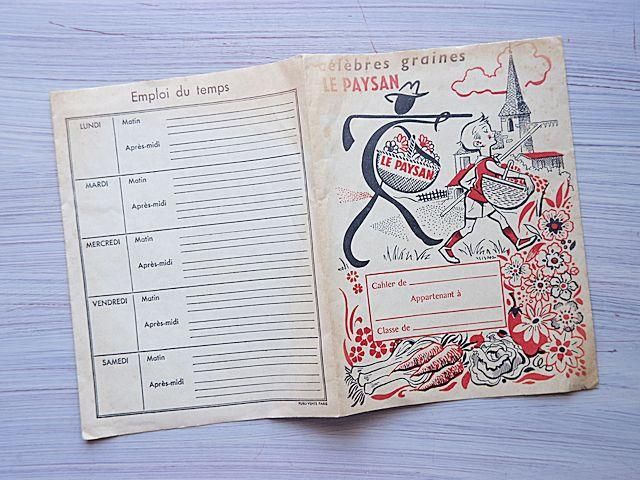 Emploi du temps
LUNDI
Matin
Après-midi
MARDI
Matin
Après-midi
MERCREDI
Matin
Après-midi
VENDREDI
Matin
Après-midi
SAMEDI
Matin
Après-midi
PUBLI-VENTE PARIS
célèbres graines
LE PAYSAN
LE PAYSAN
Cahier de
Appartenant à
Classe de